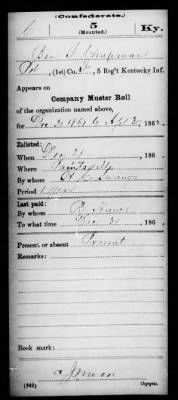 (Confederate.)
5
(Mounted.)
Ky.
Ben F. Chapman
Pvt., (1st) Co. F, 5 Reg't Kentucky Inf.
Appears on
Company Muster Roll
of the organization named above,
for Dec 21 1861 to Apl 3, 186
Enlisted:
When Dec 21, 186
Where Paintsville
By whom
Period 1 year
Last paid:
By whom
To what time Dec 31, 186
Present or absent Present
Remarks:
Book mark:
(642)
Copyist.